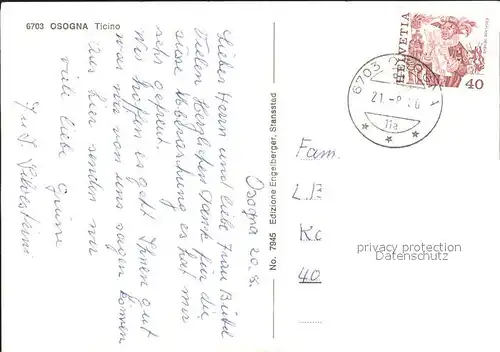 6703 OSOGNA Ticino
Osogna 20.8.
Lieber Herrn und liebe Frau
Vielen herzlichen Dank für die
süsse Überraschung es hat mir
sehr gefreut.
Wir hoffen es geht Ihnen gut
was wir von uns sagen können
Aus hier senden wir
viele liebe Grüsse
Silvestrini
No. 7945 Edizione Engelberger, Stansstad
HELVETIA
40
6703 OSOGNA
21.-8.
11a
Fam.
40
privacy protection
Datenschutz